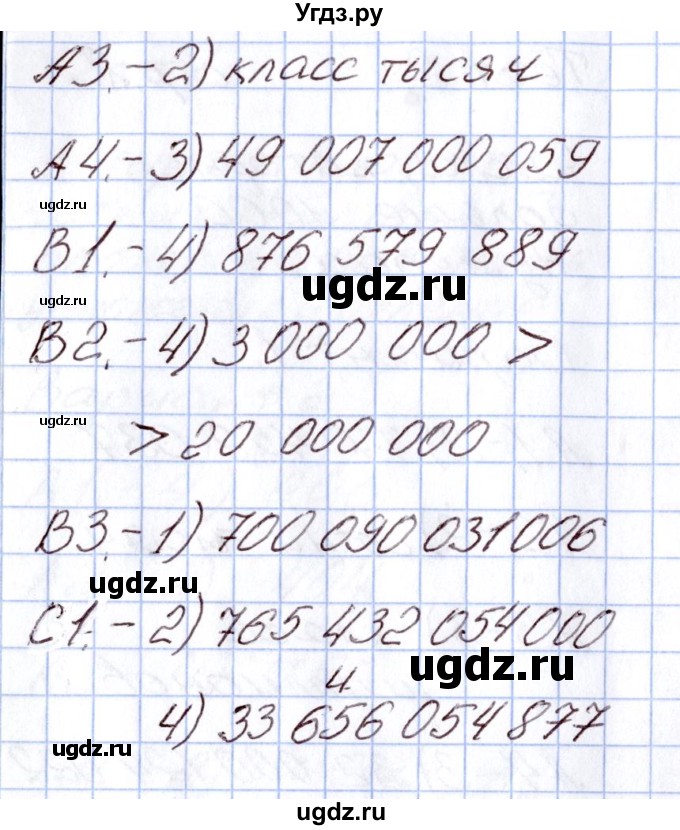 Угдз.ру
А3.-2) класс тысяч
А4.-3) 49 007 000 059
ugdz.ru
В1.-4) 876 579 889
ugdz.ru
ugdz.ru
В2.-4) 3 000 000 >
ugdz.ru
> 20 000 000
В3.-1) 700 090 031 006
ugdz.ru
С1.-2) 765 432 054 000
ugdz.ru
и
4) 33 656 054 877
ugdz.ru
ugdz.ru